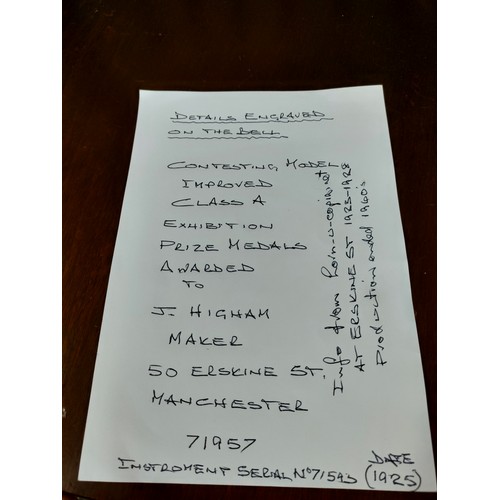 DETAILS ENGRAVED
ON THE BELL
CONTESTING MODEL
IMPROVED
CLASS A
EXHIBITION
PRIZE MEDALS
AWARDED
TO
J. HIGHAM
MAKER
50 ERSKINE ST.
MANCHESTER
71957
INSTRUMENT SERIAL No 71593
DATE
(1925)
Info from horn-u-copia.net
AT ERSKINE ST 1923-1928
Production ended 1960's